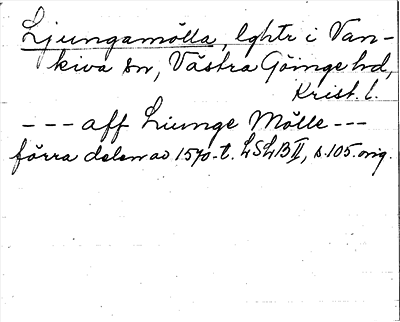 Ljungamölla, lghtr i Van-
kiva sn, Västra Göinge hd,
Krist. l.
--- aff Liunge Mölle ---
förra delen av 1570-t. LSLB II, s. 105. orig.